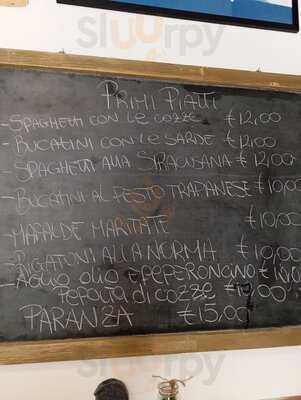 Sluurpy
PRIMI PIATTI
- SPAGHETTI CON LE COZZE €12,00
- BUCATINI CON LE SARDE €12,00
- SPAGHETTI ALLA SIRACUSANA €12,00
- BUCATINI AL PESTO TRAPANESE €10,00
MAFALDE MARITATE €10,00
- RIGATONI ALLA NORMA €10,00
- AGLIO OLIO E PEPERONCINO €
PEPATA di COZZE
PARANZA €15,00
Sluurpy